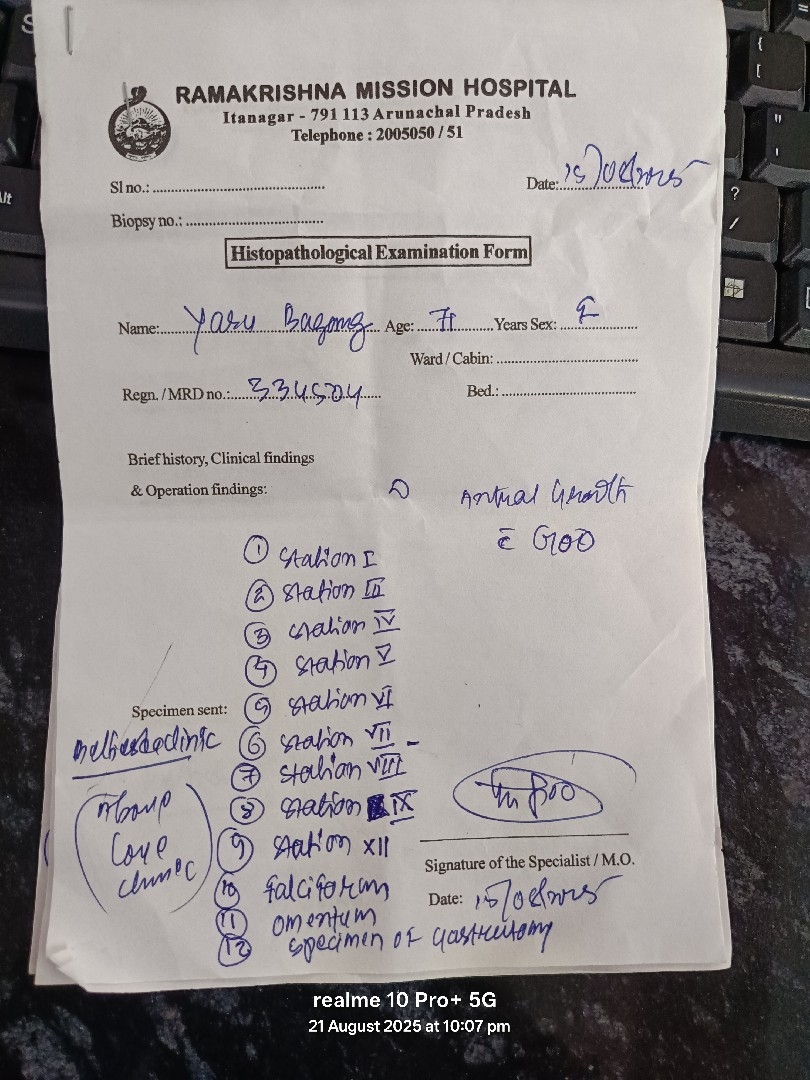 RAMAKRISHNA MISSION HOSPITAL
Itanagar - 791 113 Arunachal Pradesh
Telephone : 2005050 / 51
Sl no.: ............................................
Date: 15/08/2025
Biopsy no.: ...................................
Histopathological Examination Form
Name: Yaru Age: 71 Years Sex: F
Ward / Cabin: ...................................
Regn. / MRD no.: 334504 Bed.: ...................................
Brief history, Clinical findings
& Operation findings: Antral Growth
c̄ GOO
① Station I
② Station III
③ Station IV
④ Station V
Specimen sent: ⑤ Station VI
⑥ Station VII
⑦ Station VIII
⑧ Station IX
⑨ Station XII
⑩ falciform
⑪ omentum
⑫ Specimen of Gastrectomy
Care
clinic
Signature of the Specialist / M.O.
Date: 15/08/2025
realme 10 Pro+ 5G
21 August 2025 at 10:07 pm